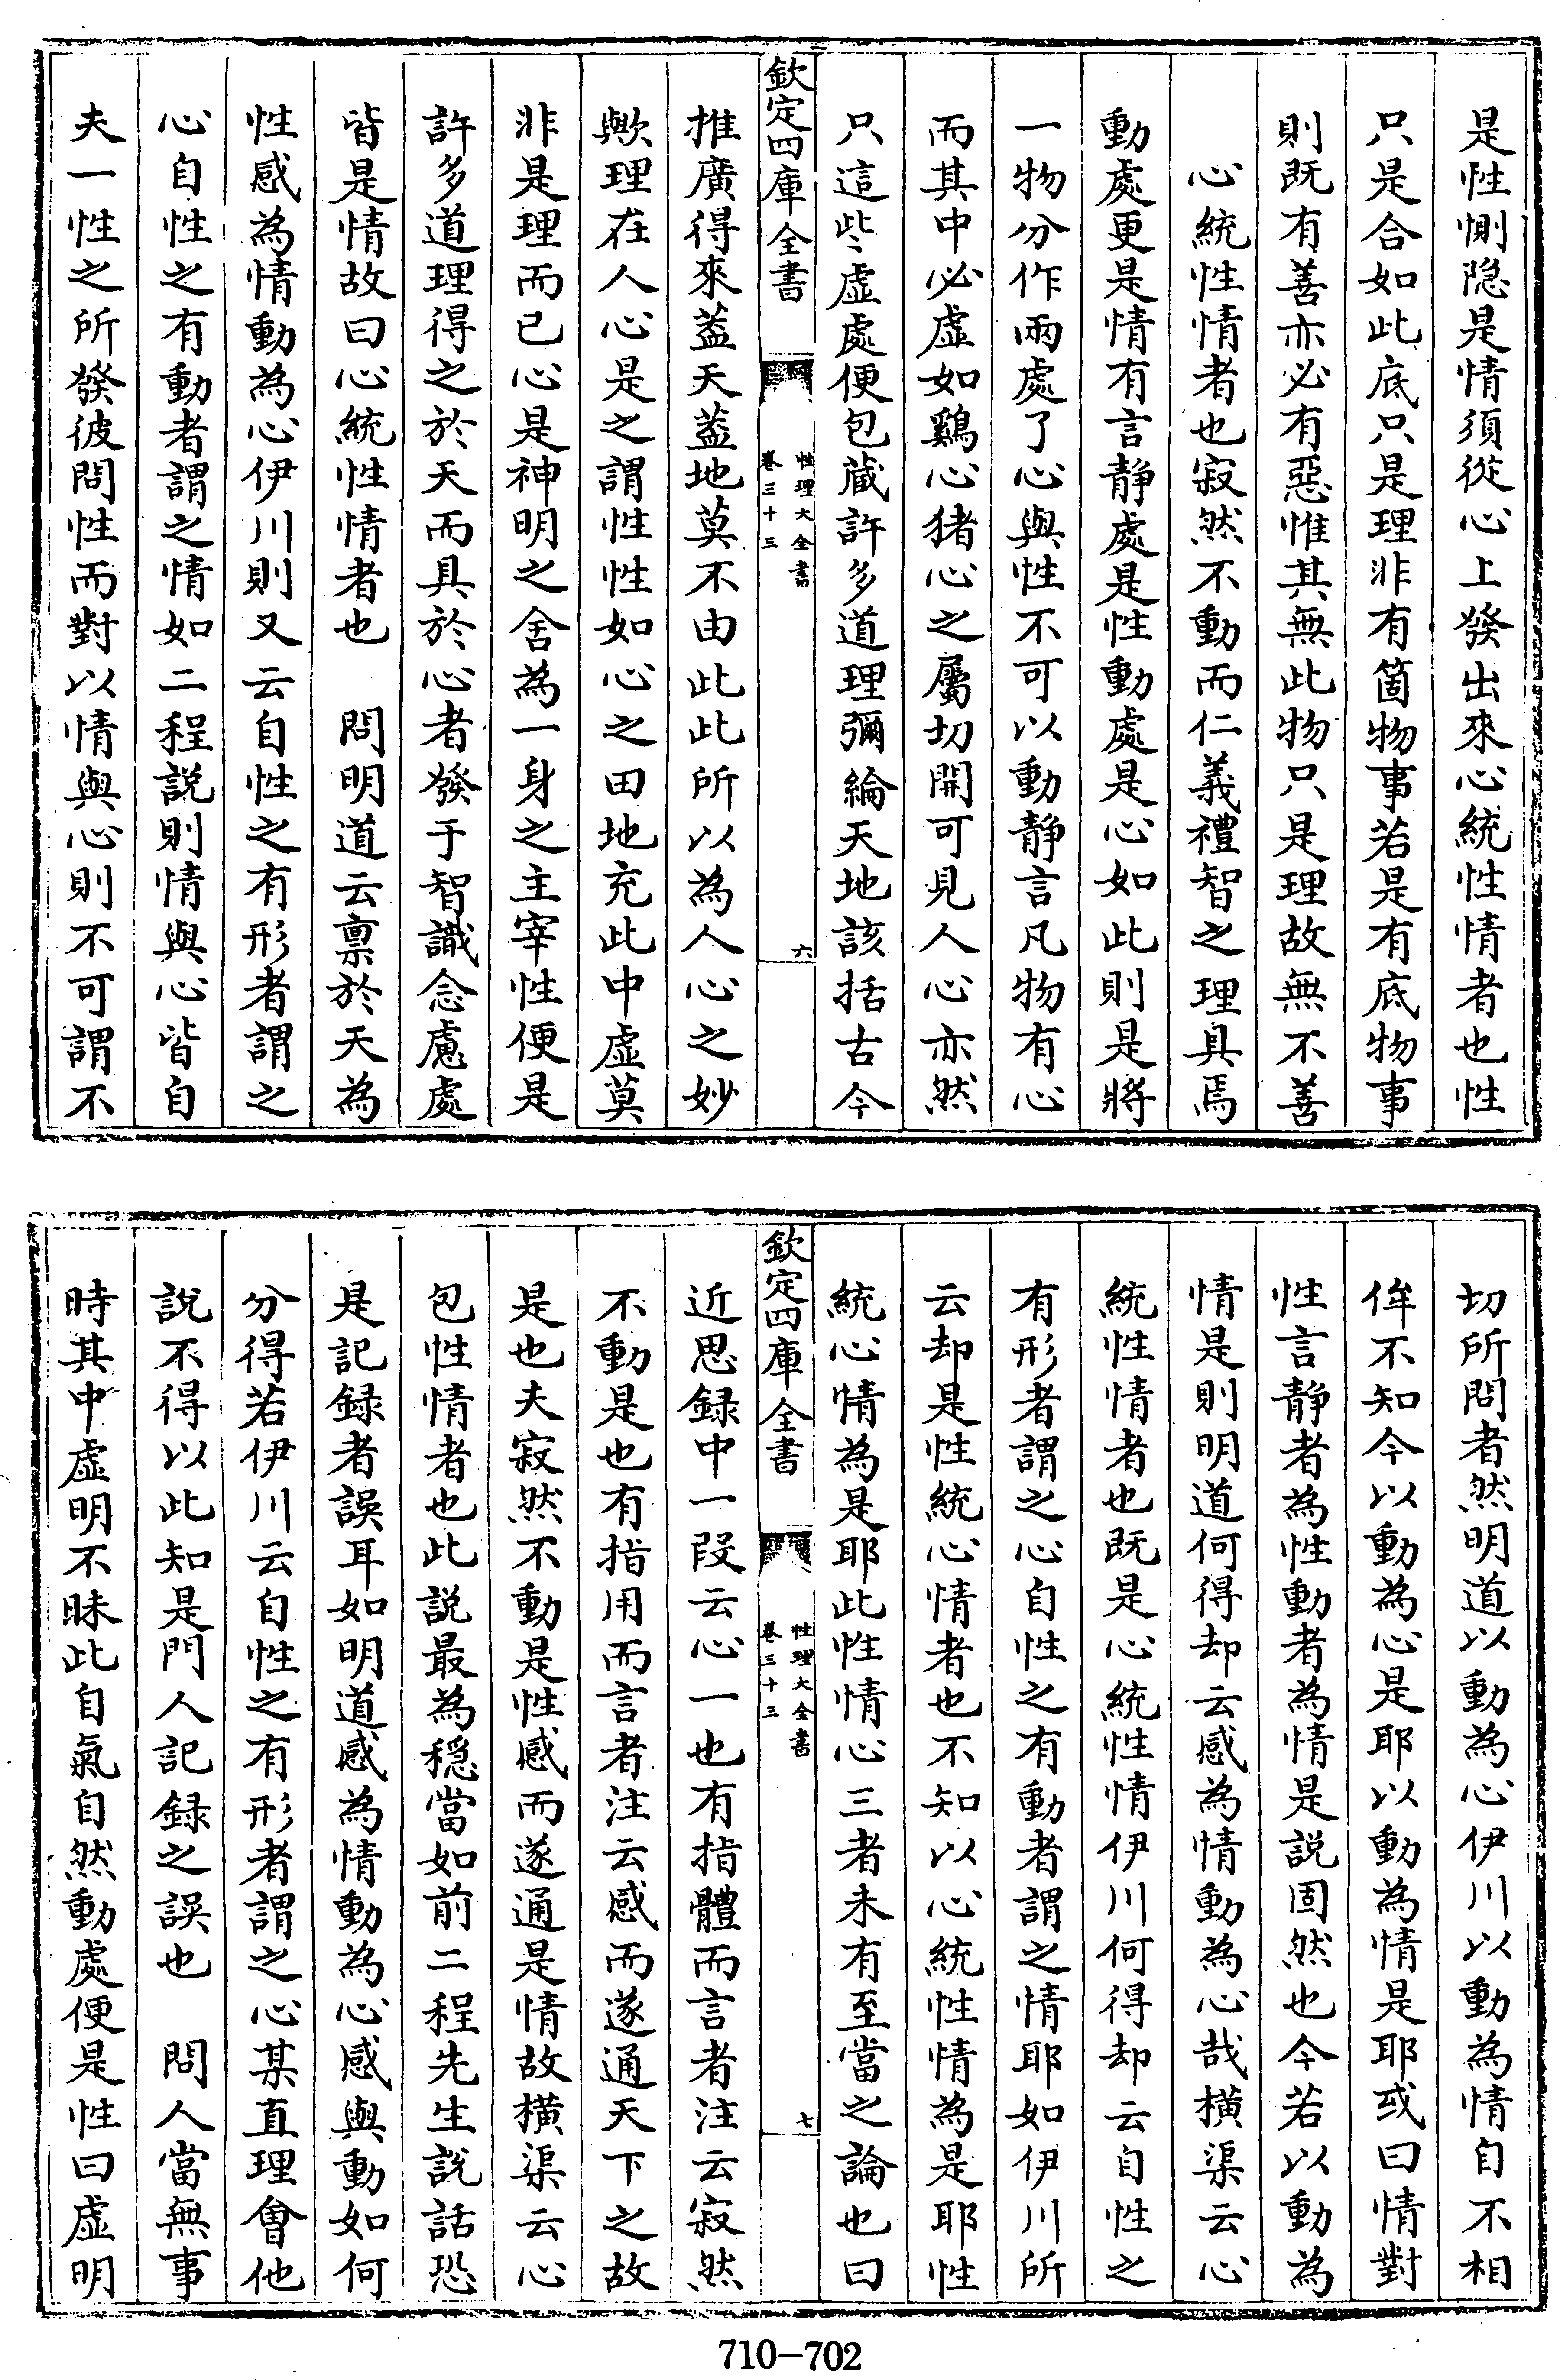 是性惻隐是情須從心上發出來心統性情者也性
只是合如此底只是理非有箇物事若是有底物事
則既有善亦必有惡惟其無此物只是理故無不善
心統性情者也寂然不動而仁義禮智之理具焉
動處更是情有言静處是性動處是心如此則是將
一物分作兩處了心與性不可以動静言凡物有心
而其中必虛如鷄心猪心之屬切開可見人心亦然
只這些虛處便包蔵許多道理彌綸天地該括古今
欽定四庫全書
性理大全書
卷三十三
六
推廣得來葢天葢地莫不由此此所以為人心之妙
歟理在人心是之謂性性如心之田地充此中虛莫
非是理而已心是神明之舍為一身之主宰性便是
許多道理得之於天而具於心者發于智識念慮處
皆是情故曰心統性情者也 問明道云禀於天為
性感為情動為心伊川則又云自性之有形者謂之
心自性之有動者謂之情如二程説則情與心皆自
夫一性之所發彼問性而對以情與心則不可謂不
切所問者然明道以動為心伊川以動為情自不相
侔不知今以動為心是耶以動為情是耶或曰情對
性言静者為性動者為情是説固然也今若以動為
情是則明道何得却云感為情動為心哉横渠云心
統性情者也既是心統性情伊川何得却云自性之
有形者謂之心自性之有動者謂之情耶如伊川所
云却是性統心情者也不知以心統性情為是耶性
統心情為是耶此性情心三者未有至當之論也曰
欽定四庫全書
性理大全書
卷三十三
七
近思録中一段云心一也有指體而言者注云寂然
不動是也有指用而言者注云感而遂通天下之故
是也夫寂然不動是性感而遂通是情故横渠云心
包性情者也此説最為穏當如前二程先生説話恐
是記録者誤耳如明道感為情動為心感與動如何
分得若伊川云自性之有形者謂之心某直理會他
説不得以此知是門人記録之誤也 問人當無事
時其中虛明不昧此自氣自然動處便是性曰虛明
710-702